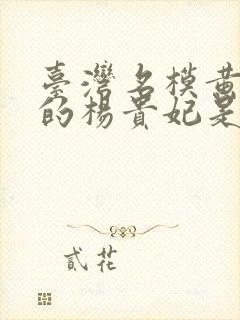 臺灣名模黃
的楊貴妃是
貳花